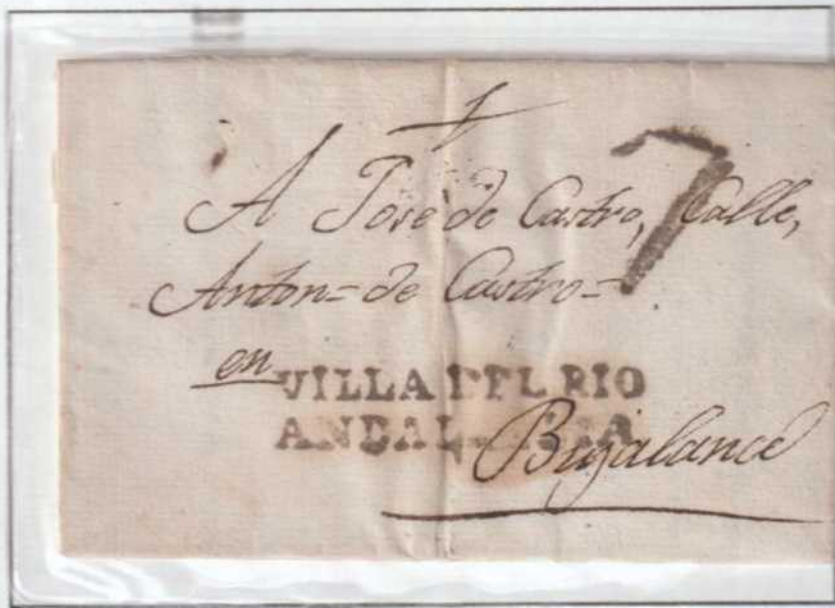 7
A Jose de Castro, Calle,
Anton= de Castro=
en
VILLA DEL RIO
ANDALUCIA
Bujalance